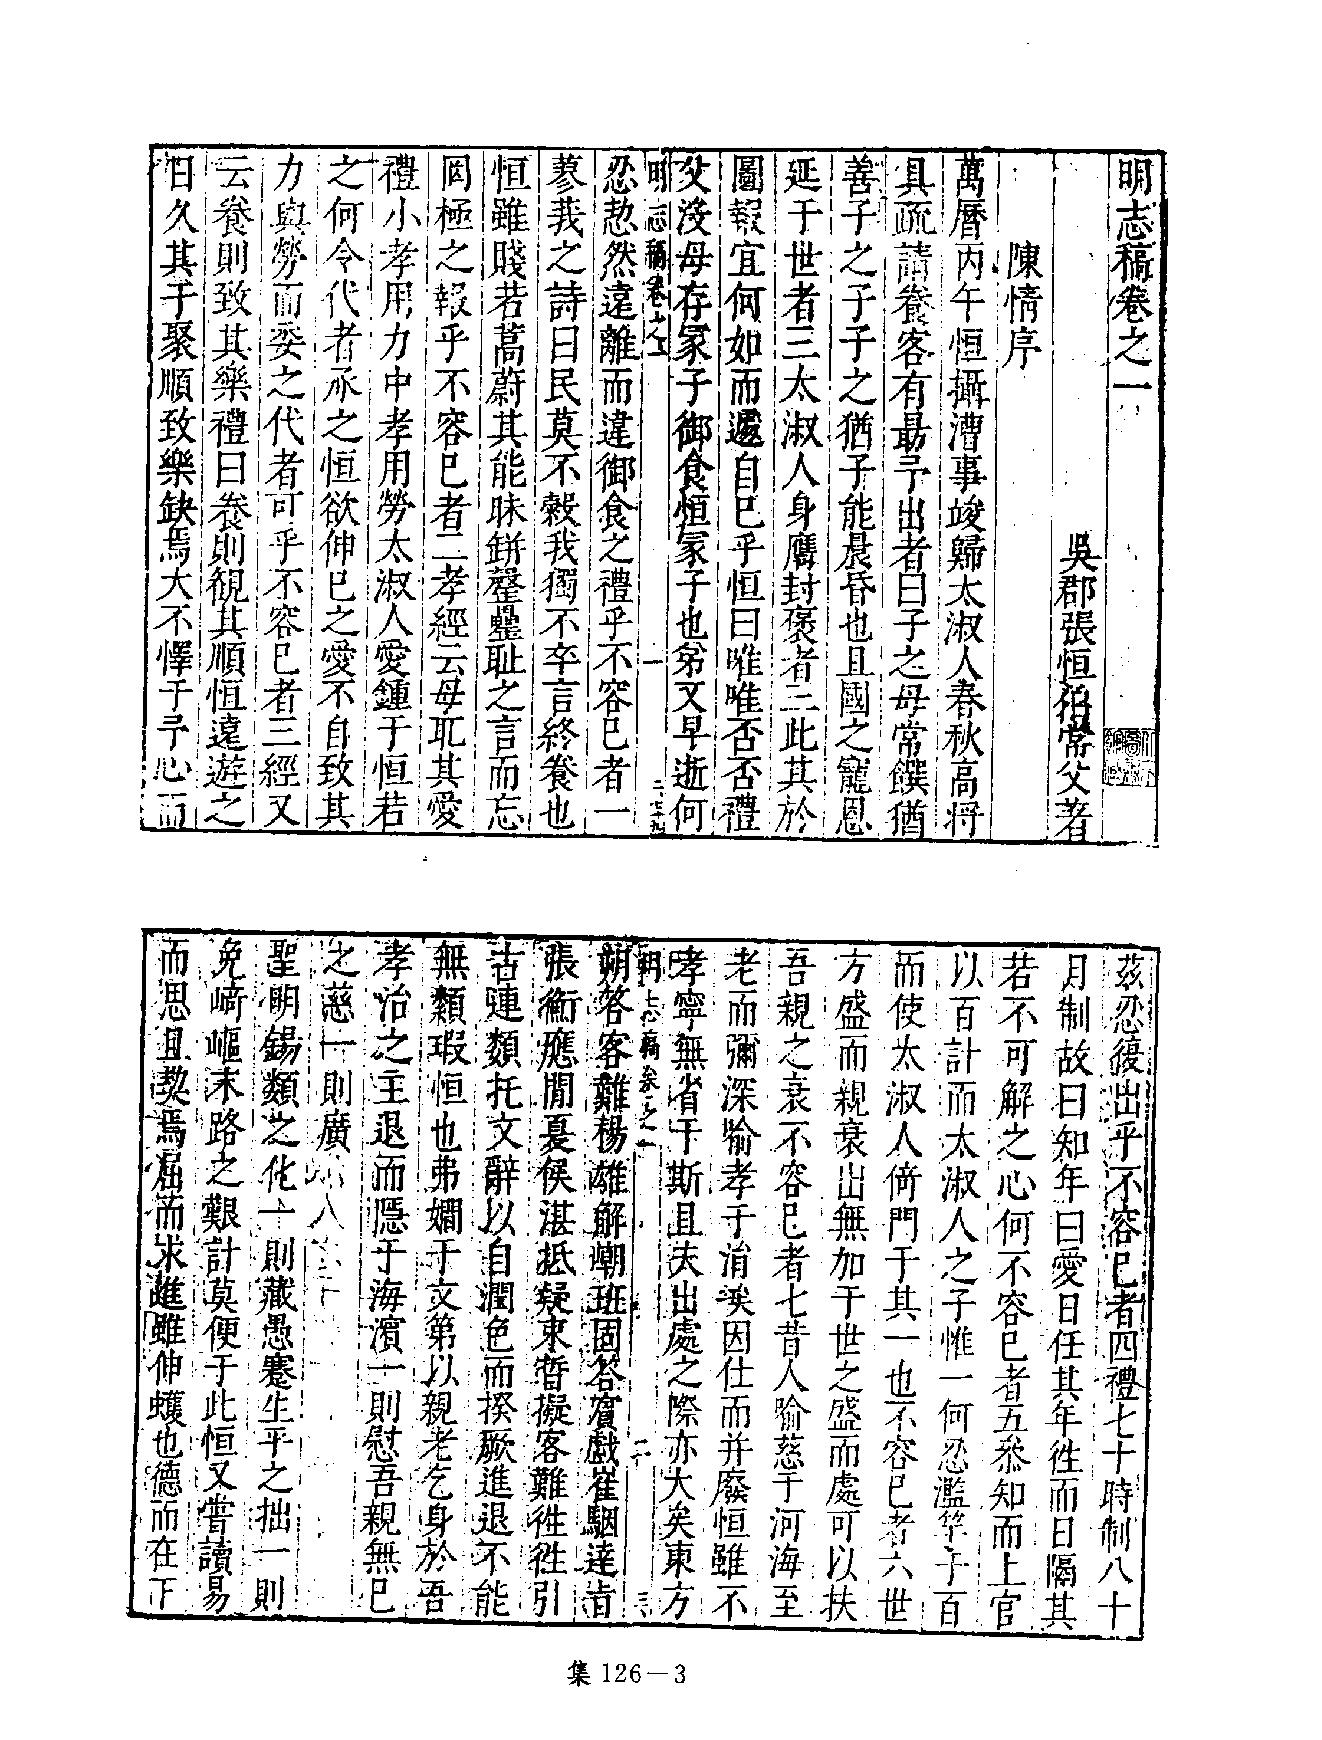 明志稿卷之一
吳郡張恒伯常父著
陳情序
萬曆丙午恒攝漕事竣歸太淑人春秋高將
具疏請養客有勗予出者曰子之母常饌猶
善子之子子之猶子能晨昏也且國之寵恩
延于世者三太淑人身膺封褒者三此其於
圖報宜何如而遽自巳乎恒曰唯唯否否禮
父沒母存冢子御食恒冢子也弟又早逝何
明志稿卷之一 一
忍愸然遠離而違御食之禮乎不容巳者一
蓼莪之詩曰民莫不穀我獨不卒言終養也
恒雖賤若蒿蔚其能昧缾罄罍耻之言而忘
罔極之報乎不容巳者二孝經云母耴其愛
禮小孝用力中孝用勞太淑人愛鍾于恒若
之何令代者承之恒欲伸巳之愛不自致其
力與勞而委之代者可乎不容巳者三經又
云養則致其樂禮曰養則觀其順恒遠遊之
日久其于聚順致樂缺焉大不懌于予心而
茲忍復出乎不容巳者四禮七十時制八十
月制故曰知年曰愛日任其年徃而日隔其
若不可解之心何不容巳者五叅知而上官
以百計而太淑人之子惟一何忍濫竽于百
而使太淑人倚門于其一也不容巳者六世
方盛而親衰出無加于世之盛而處可以扶
吾親之衰不容巳者七昔人喻慈于河海至
老而彌深喻孝于涓埃因仕而并廢恒雖不
孝寧無省于斯且夫出處之際亦大矣東方
明志稿卷之一 二
朔答客難楊雄解嘲班固答賓戲崔駰達旨
張衡應閒夏侯湛抵疑束晳擬客難徃徃引
古連類托文辭以自潤色而揆厥進退不能
無纇瑕恒也弗嫺于文第以親老乞身於吾
孝治之主退而隱于海濱一則慰吾親無巳
之慈一則廣
聖明錫類之化一則藏愚蹇生平之拙一則
免崎嶇末路之艱計莫便于此恒又嘗讀易
而思且契焉屈而求進雖伸蠖也德而在下
集 126－3